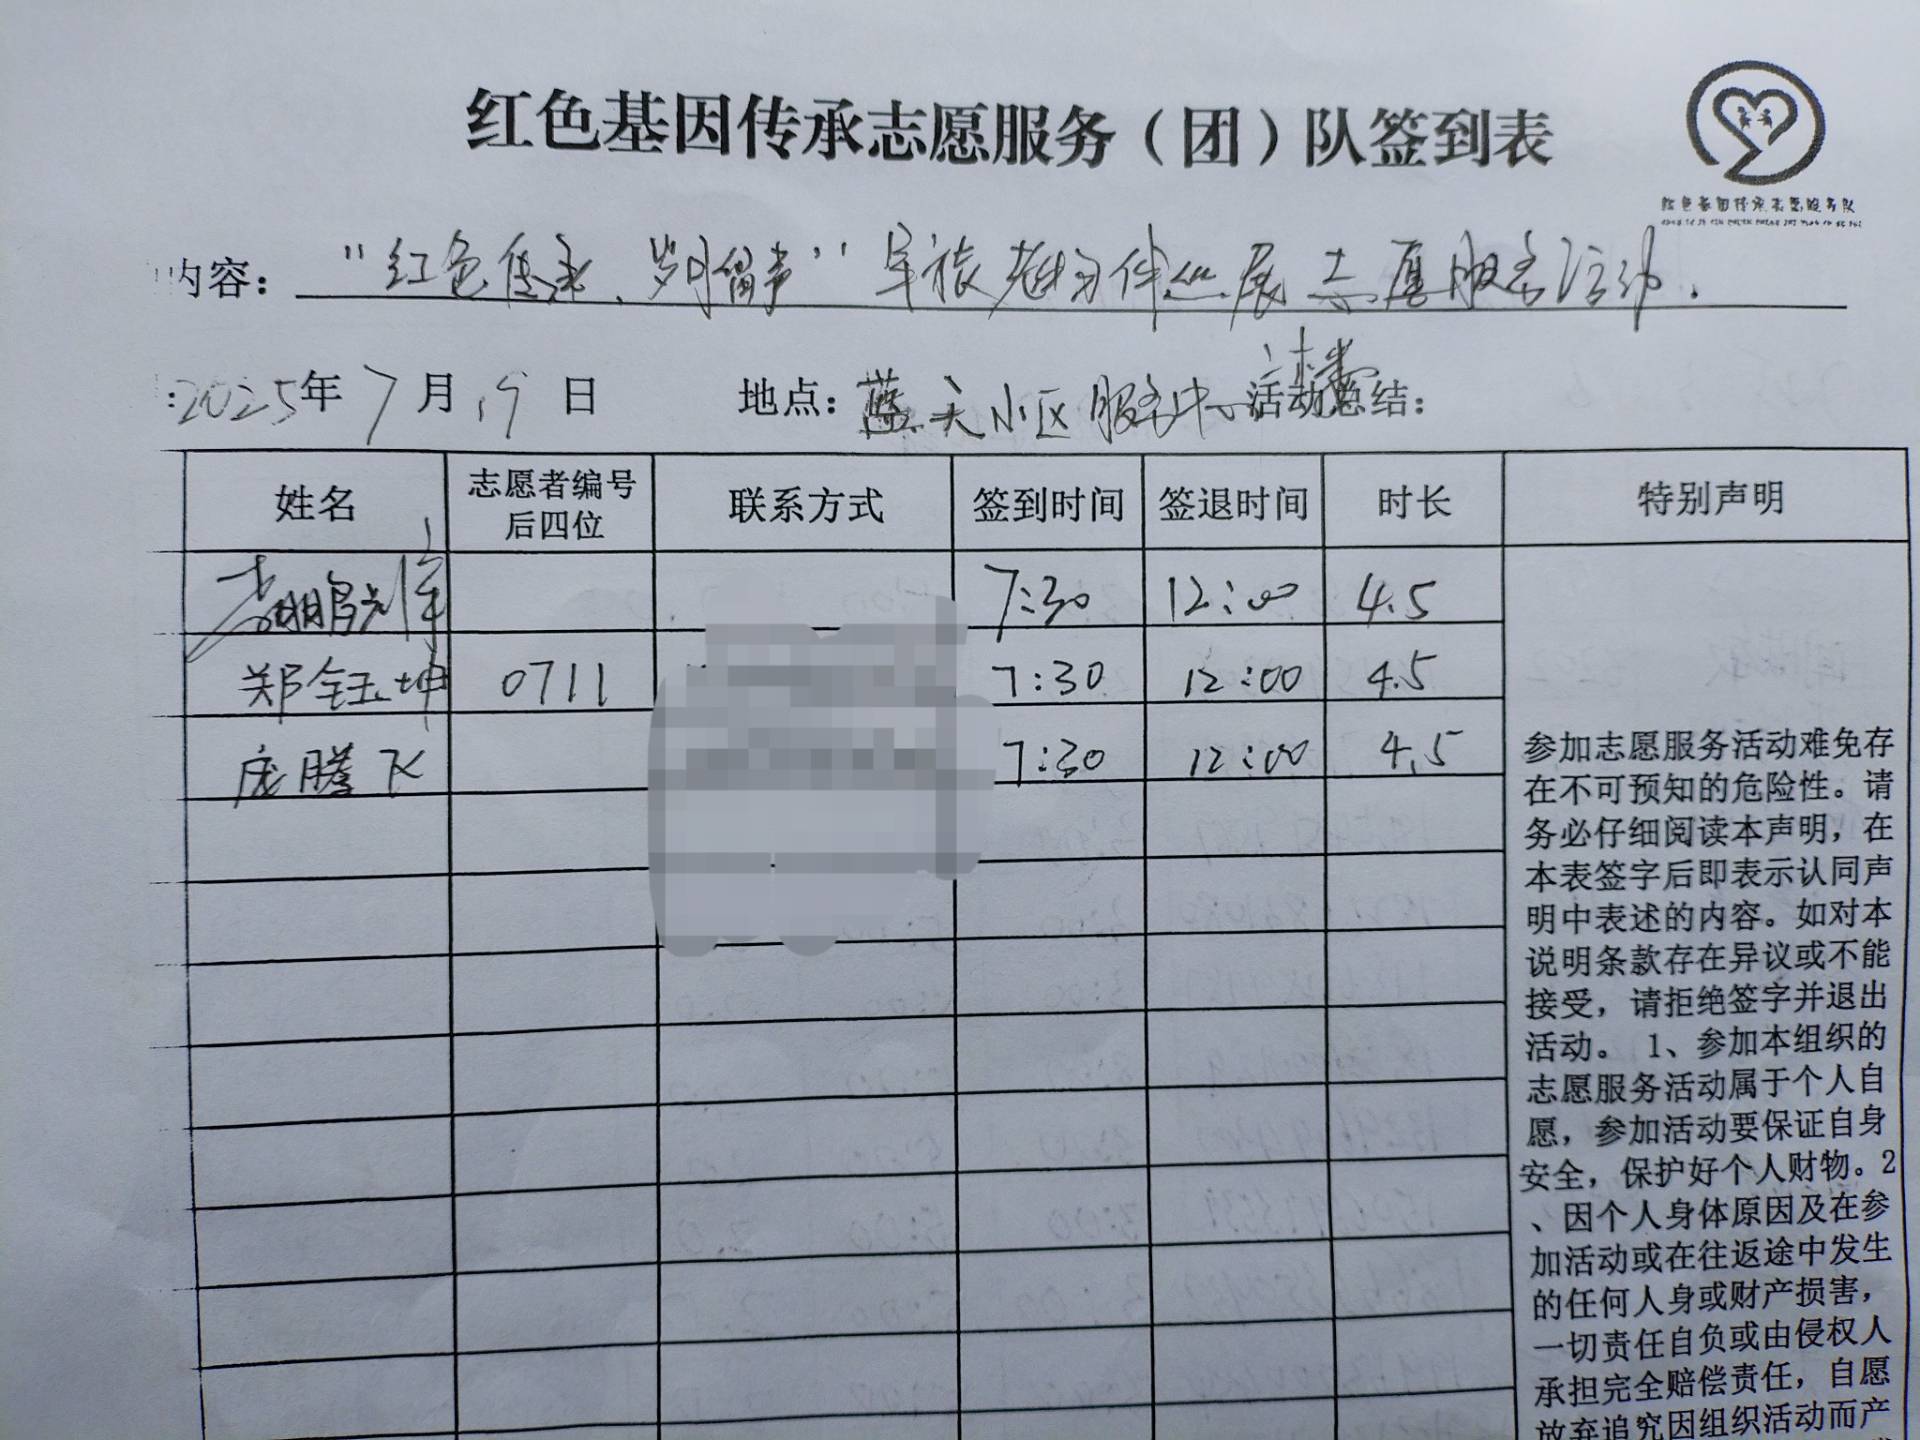 红色基因传承志愿服务（团）队签到表
红色基因传承志愿服务队
内容：“红色传承、岁月留声”军旅老物件巡展志愿服务活动.
:2025年7月19日 地点：蓝天小区服务中心 活动总结：
姓名 志愿者编号后四位 联系方式 签到时间 签退时间 时长 特别声明
7:30 12:00 4.5
郑钰坤 0711 7:30 12:00 4.5
庞腾飞 7:30 12:00 4.5
参加志愿服务活动难免存
在不可预知的危险性。请
务必仔细阅读本声明，在
本表签字后即表示认同声
明中表述的内容。如对本
说明条款存在异议或不能
接受，请拒绝签字并退出
活动。 1、参加本组织的
志愿服务活动属于个人自
愿，参加活动要保证自身
安全，保护好个人财物。2
、因个人身体原因及在参
加活动或在往返途中发生
的任何人身或财产损害，
一切责任自负或由侵权人
承担完全赔偿责任，自愿
放弃追究因组织活动而产